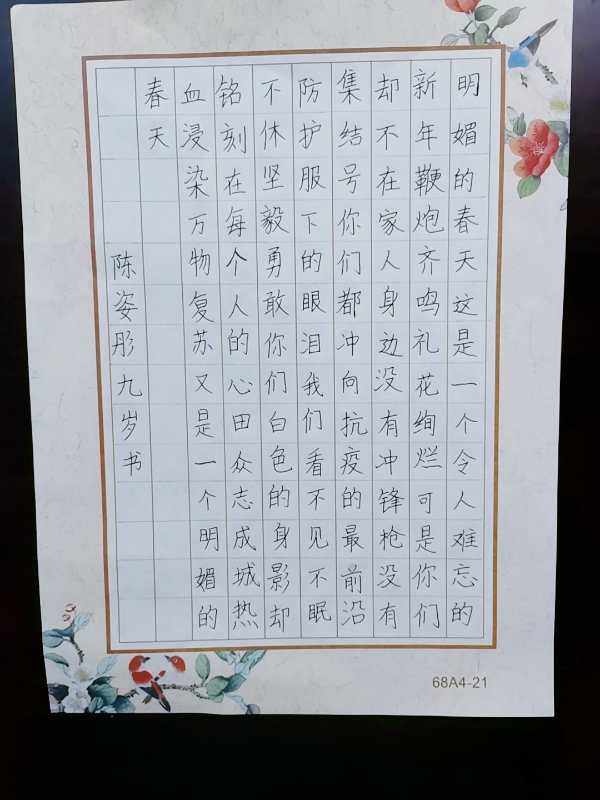 明媚的春天这是一个令人难忘的
新年鞭炮齐鸣礼花绚烂可是你们
却不在家人身边没有冲锋枪没有
集结号你们都冲向抗疫的最前沿
防护服下的眼泪我们看不见不眠
不休坚毅勇敢你们白色的身影却
铭刻在每个人的心田众志成城热
血浸染万物复苏又是一个明媚的
春天
陈姿彤九岁书
68A4-21